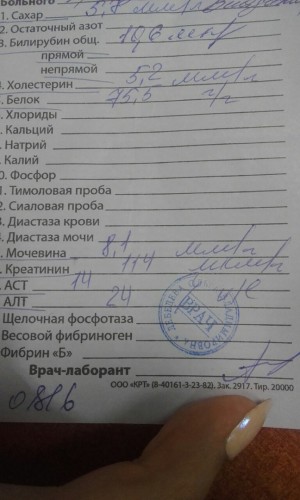 больного
1. Сахар 5,8
2. Остаточный азот
3. Билирубин общ. 10,6
прямой
непрямой
. Холестерин 5,2 ммл/л
. Белок 75,5 г/л
. Хлориды
. Кальций
. Натрий
. Калий
0. Фосфор
1. Тимоловая проба
2. Сиаловая проба
3. Диастаза крови
. Диастаза мочи
. Мочевина 8,1 ммл/л
. Креатинин 114 мкмл/л
. АСТ 14
АЛТ 24
ВРАЧ
Щелочная фосфотаза
Весовой фибриноген
Фибрин «Б»
Врач-лаборант
ООО «КРТ» (8-40161-3-23-82). Зак. 2917. Тир. 20000